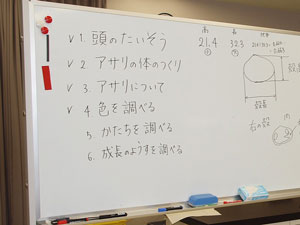 ✓ 1. 頭のたいそう
✓ 2. アサリの体のつくり
✓ 3. アサリについて
✓ 4. 色を調べる
5. かたちを調べる
6. 成長のようすを調べる
高 長
21.4 32.3
殻高
殻長
右の殻